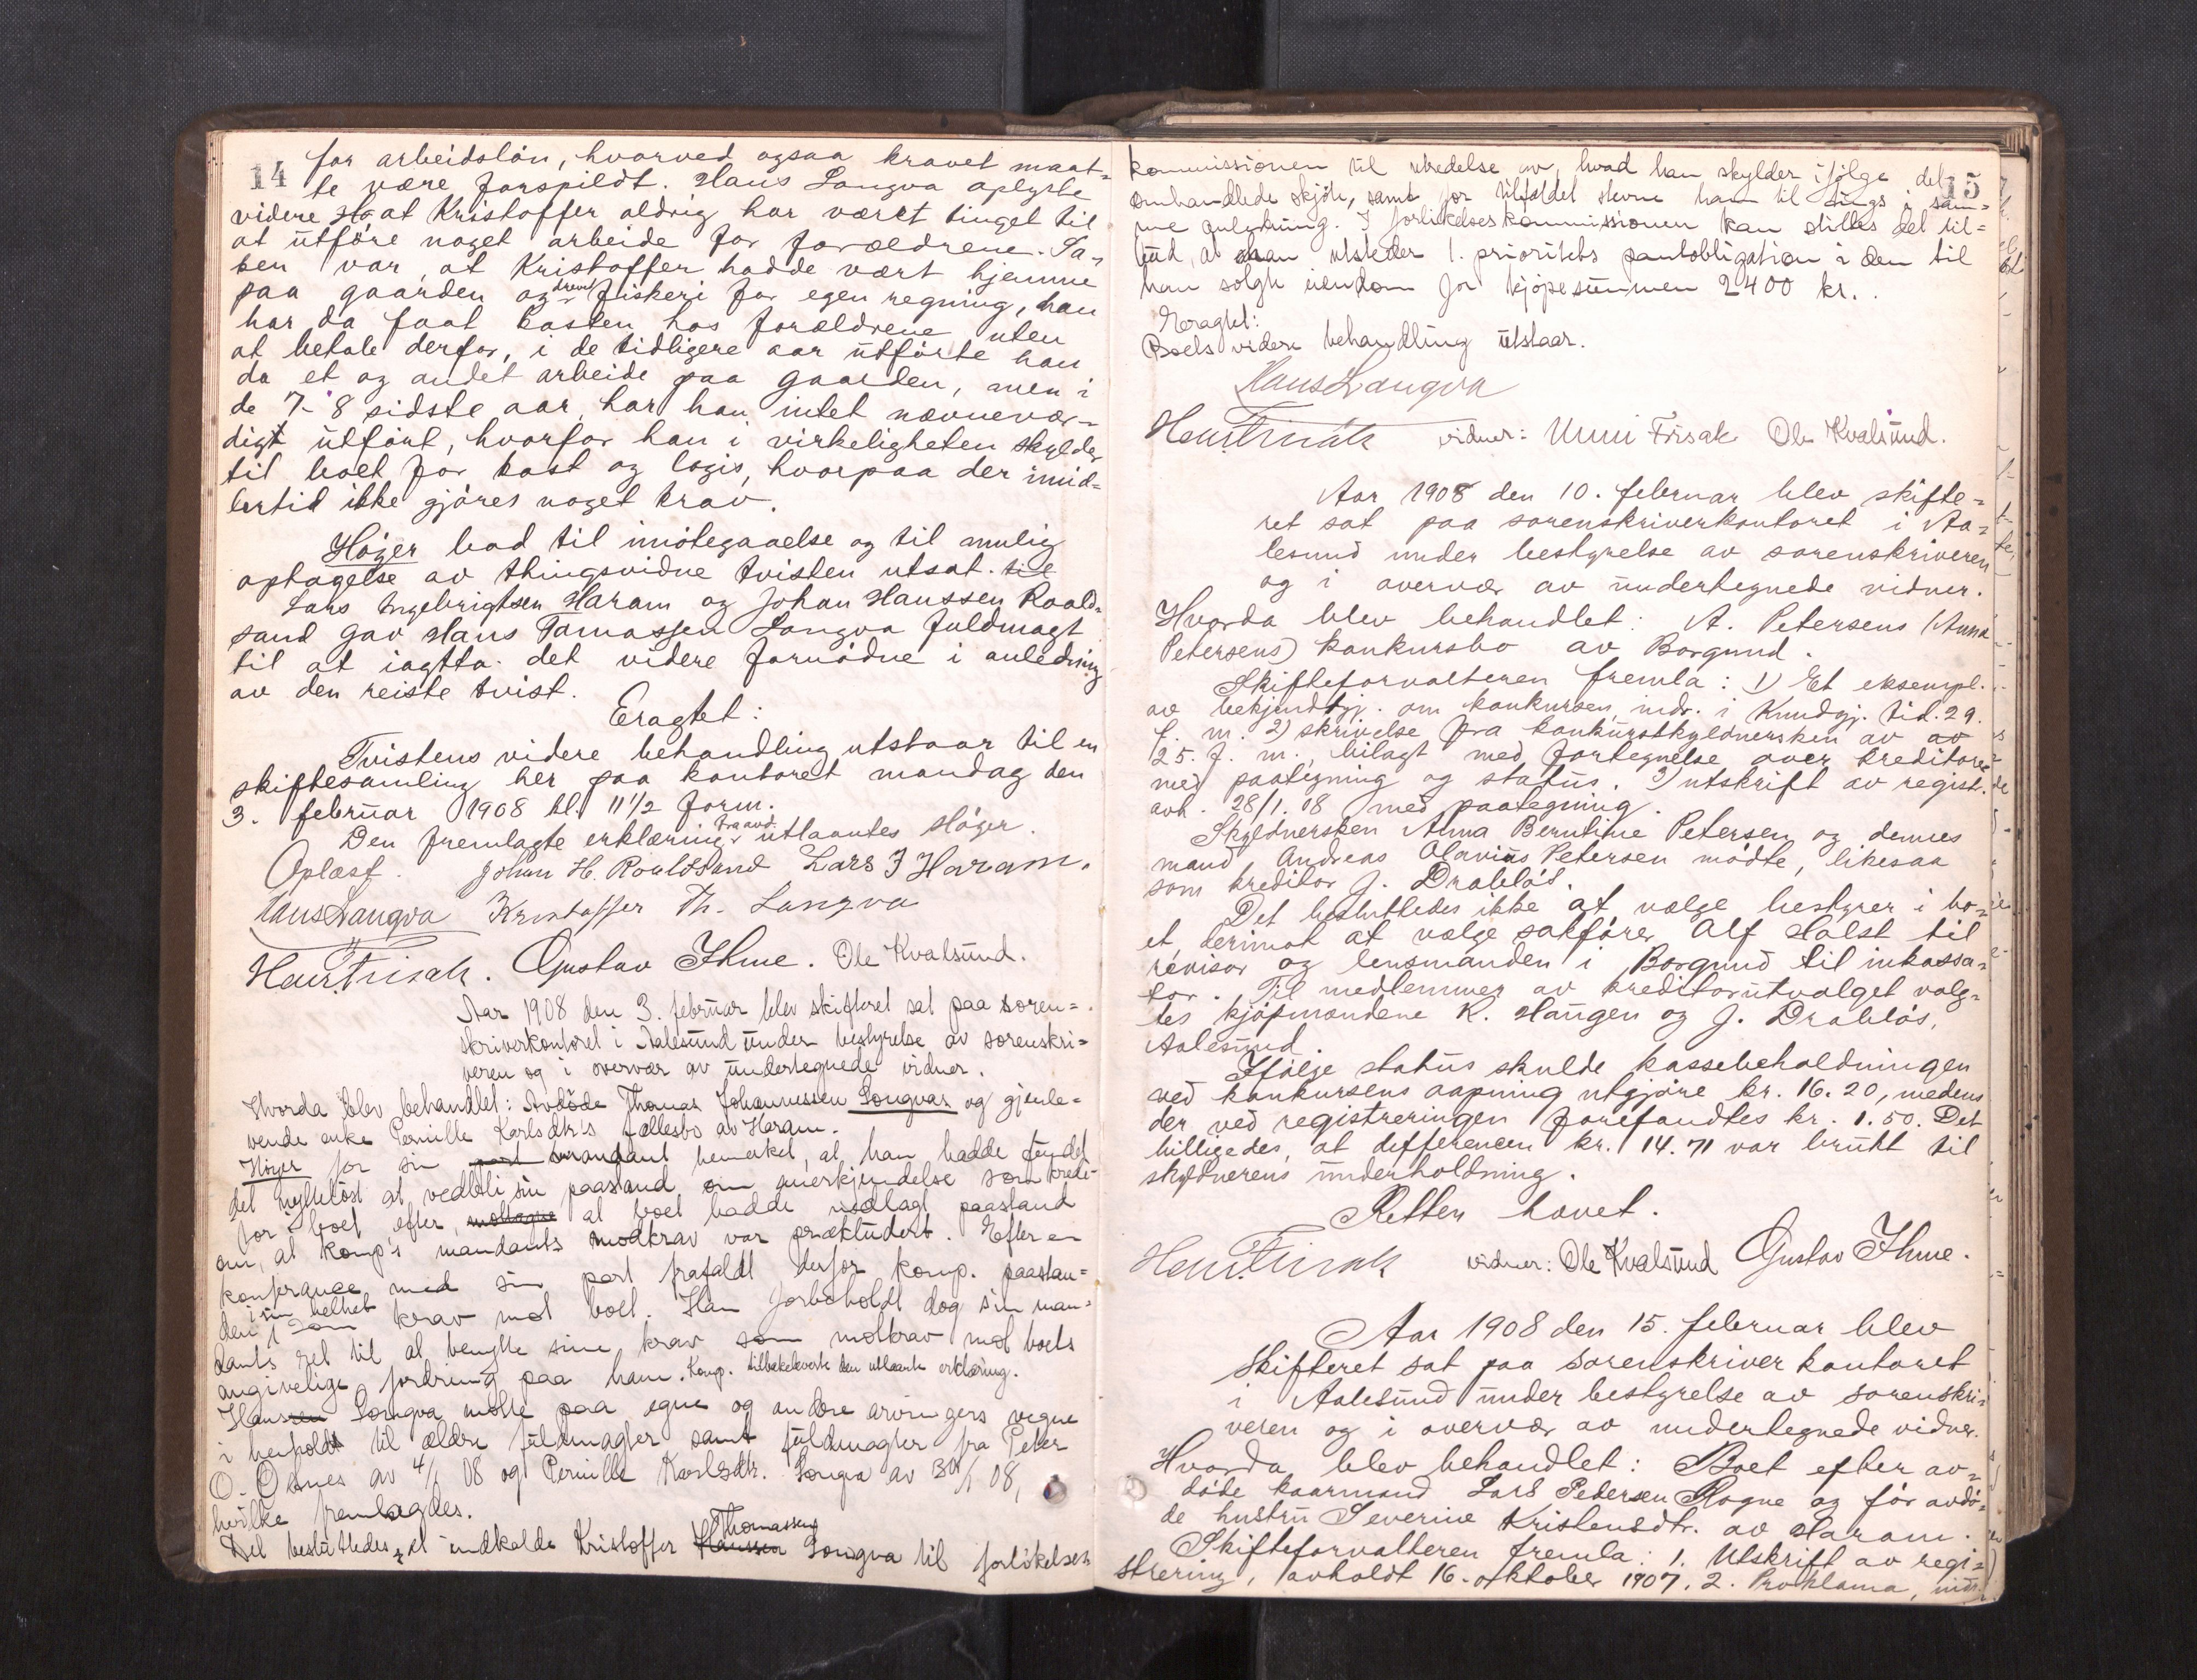 14
for arbeidslön, hvorved ogsaa kravet maat-
te være forspildt. Hans Longva oplyste
videre at Kristoffer aldrig har været tinget til
at utföre noget arbeide for forældrene. Sa-
ken var, at Kristoffer hadde vært hjemme
paa gaarden og drevet fiskeri for egen regning, han
har da faat kosten hos forældrene uten
at betale derfor, i de tidligere aar utförte han
da et og andet arbeide paa gaarden, men i
de 7-8 sidste aar har han intet nævnevær-
digt utfört, hvorfor han i virkeligheten skylder
til boet for kost og logis, hvorpaa der imid-
lertid ikke gjöres noget krav.
Höyer bad til imötegaaelse og til mulig
optagelse av thingsvidne tvisten utsat. til
Lars Ingebrigtsen Haram og Johan Hanssen Roald-
sand gav Hans Tomassen Longva fuldmagt
til at iagtta det videre fornödne i anledning
av den reiste tvist.
Eragtet:
Tvistens videre behandling utstaar til en
skiftesamling her paa kontoret mandag den
3. februar 1908 kl. 11 1/2 form.
Den fremlagte erklæring utlaantes Höyer.
Oplæst. Johan H. Roaldsand Lars I Haram.
Hans Longva Kristoffer Th. Longva
Hans Frisak. Gustav Ihme. Ole Kvalsund.
Aar 1908 den 3. februar blev skifteret sat paa soren-
skriverkontoret i Aalesund under bestyrelse av sorenskri-
veren og i overvær av undertegnede vidner.
Hvorda blev behandlet: Avdöde Thomas Johannessen Longvas og gjenle-
vende enke Pernille Karlsdtr's fællesbo av Haram.
Höyer for sin part mandant bemerket, at han hadde fundet
det nyttelöst at vedbli sin paastand om anerkjendelse som kredi-
tor i boet efter, mottagne at boet hadde nedlagt paastand
om, at komp's mandants modkrav var prækludert. Efter en
konferance med sin part frafaldt derfor komp. paastan-
den i sin helhet som krav mot boet. Han forbeholdt dog sin man-
dants ret til at benytte sine krav som motkrav mot boets
angivelige fordring paa ham. Komp. tilbakeleverte den utlaante erklæring.
Hanssen Longva mötte paa egne og andre arvingers vegne
i henhold til ældre fuldmagter samt fuldmagter fra Peter
O. Otnes av 4/1 08 og Pernille Karlsdtr. Longva av 30/1 08,
hvilke fremlagdes.
Det besluttedes, at indkalde Kristoffer Hanssen Thomassen Longva til forlikelses-
15
kommissionen til utredelse av, hvad han skylder ifölge det
omhandlede skjöte, samt for tilfældet stevne ham til tings i sam-
me anledning. I forlikelseskommissionen kan stilles det til-
bud, at han utsteder 1. prioritets pantobligation i den til
ham solgte eiendom for kjöpesummen 2400 kr.
Eragtet:
Boets videre behandling utstaar.
Hans Longva
Hans Frisak vidner: Unni Frisak Ole Kvalsund.
Aar 1908 den 10. februar blev skifte-
ret sat paa sorenskriverkontoret i Aa-
lesund under bestyrelse av sorenskriveren
og i overvær av undertegnede vidner.
Hvorda blev behandlet: A. Petersens (Anna
Petersens) konkursbo av Borgund.
Skifteforvalteren fremla: 1) Et eksempl.
av bekjendtgj. om konkursen indr. i Kundgj. tid. 29.
f. m. 2) skrivelse fra konkursskyldnersken av av
25. f. m., bilagt med fortegnelse over kreditorer
med paategning og status. 3) utskrift av regist.
avh. 28/1. 08 med paategning.
Skyldnersken Anna Berntine Petersen og dennes
mand, Andreas Olavius Petersen mödte, likesaa
som kreditor J. Drabløs.
Det besluttedes ikke at vælge bestyrer i bo-
et, derimot at vælge sakförer Alf Holst til
revisor og lensmanden i Borgund til inkassa-
tor. Til medlemmer av kreditorutvalget valg-
tes kjöpmændene K. Haugen og J. Drabløs,
Aalesund.
Ifölge status skulde kassebeholdningen
ved konkursens aapning utgjöre kr. 16.20, medens
der ved registreringen forefandtes kr. 1.50. Det
billigedes, at differencen kr. 14.71 var brukt til
skyldnerens underholdning.
Retten hævet.
Hans Frisak vidner: Ole Kvalsund Gustav Ihme.
Aar 1908 den 15. februar blev
skifteret sat paa sorenskriverkontoret
i Aalesund under bestyrelse av sorenskri-
veren og i overvær av undertegnede vidner.
Hvorda blev behandlet: Boet efter av-
döde kaarmand Lars Pedersen Rogne og för avdö-
de hustru Severine Kristensdtr. av Haram.
Skifteforvalteren fremla: 1. Utskrift av regi-
strering, avholdt 16. oktober 1907. 2. Proklama, indr.